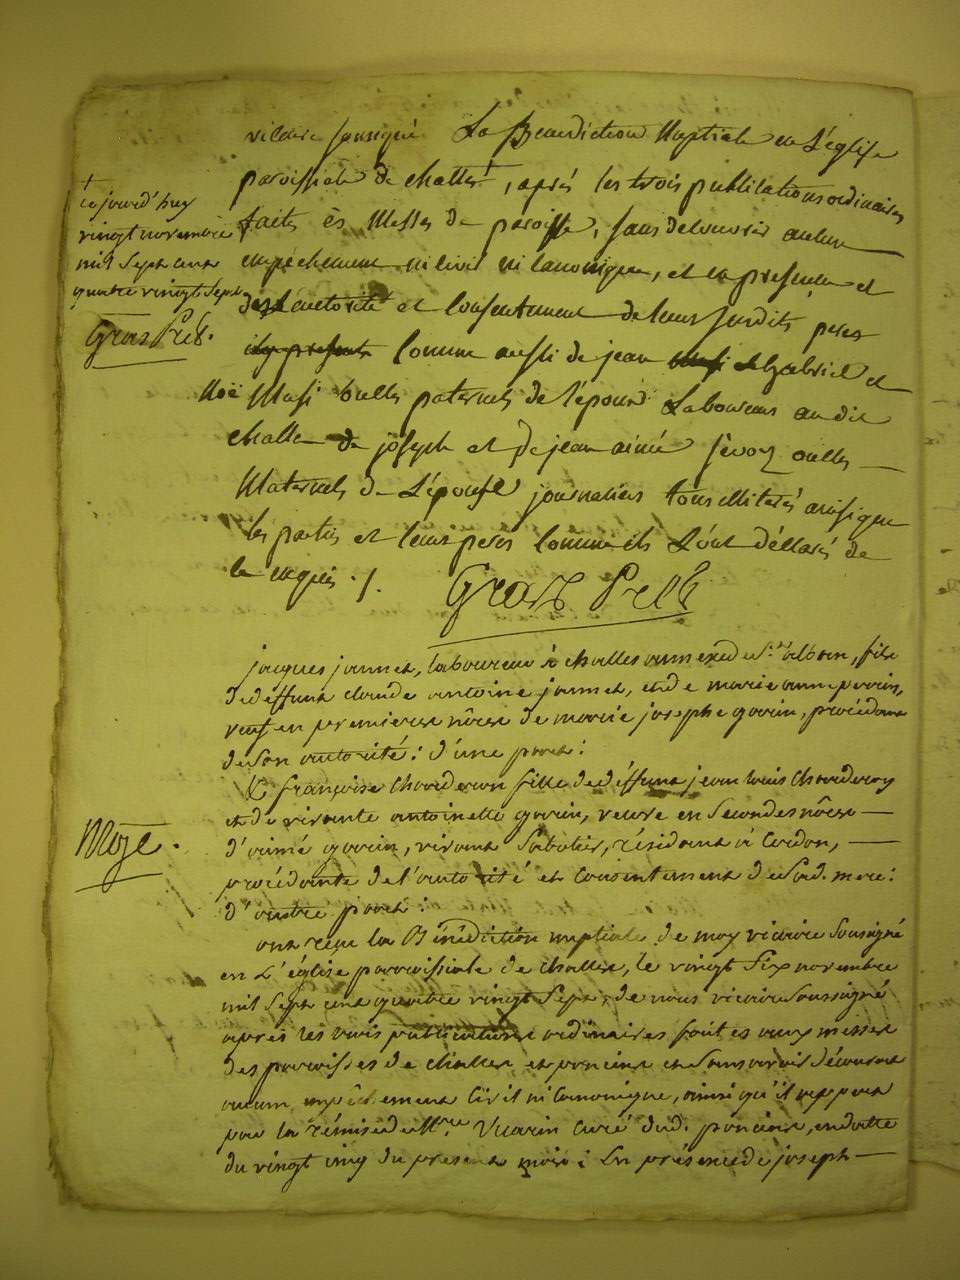 vicaire soussigné La Benediction Nuptiale en L'église
paroissiale de challes +, aprés les trois publications ordinaires
faites ès Messes de paroisse, sans decouvrir aucun
empêchement ni civil ni canonique, et en presence et
de l'autorité et consentement de leurs susdits peres
comme aussi de jean gabriel et
Noë Masi oncles paternels de l'époux Laboureurs au dit
challe de joseph et de jean aimé oncles
Maternels de L'épouse journaliers tous illiterés ainsi que
les parties et leurs peres comme ils L'ont déclaré de
ce enquis ./.
Gros Prêt
+
ce jourd'huy
vingt novembre
mil sept cent
quatre vingt sept
Gros Prêt.
jacques jannet, laboureur à challes annexe de St. alban, fils
de deffunt claude antoine jannet, et de marie anne perrin,
veuf en premieres nôces de marie josephe goüin, procédant
de son autorité: d'une part:
& françoise fille de deffunt jean louis
et de vivante antoinette veuve en secondes nôces
d'aimé vivant Sabotier, résidant à Cerdon,
procédante de l'autorité et consentement de sad. mere:
d'autre part:
Moze.
ont reçu la Bénédiction nuptiale de moy vicaire soussigné
en L'église paroissiale de challes, le vingt six novembre
mil sept cent quatre vingt sept, de nous vicaire soussigné
après les trois publications ordinaires fait es aux messes
des paroisses de challes, et poncin et sans avoir découvert
aucun empêchement civil ni canonique, ainsi qu'il appert
par la rémise de Mre. curé dud. poncin, en datte
du vingt cinq du present mois: En présence de joseph